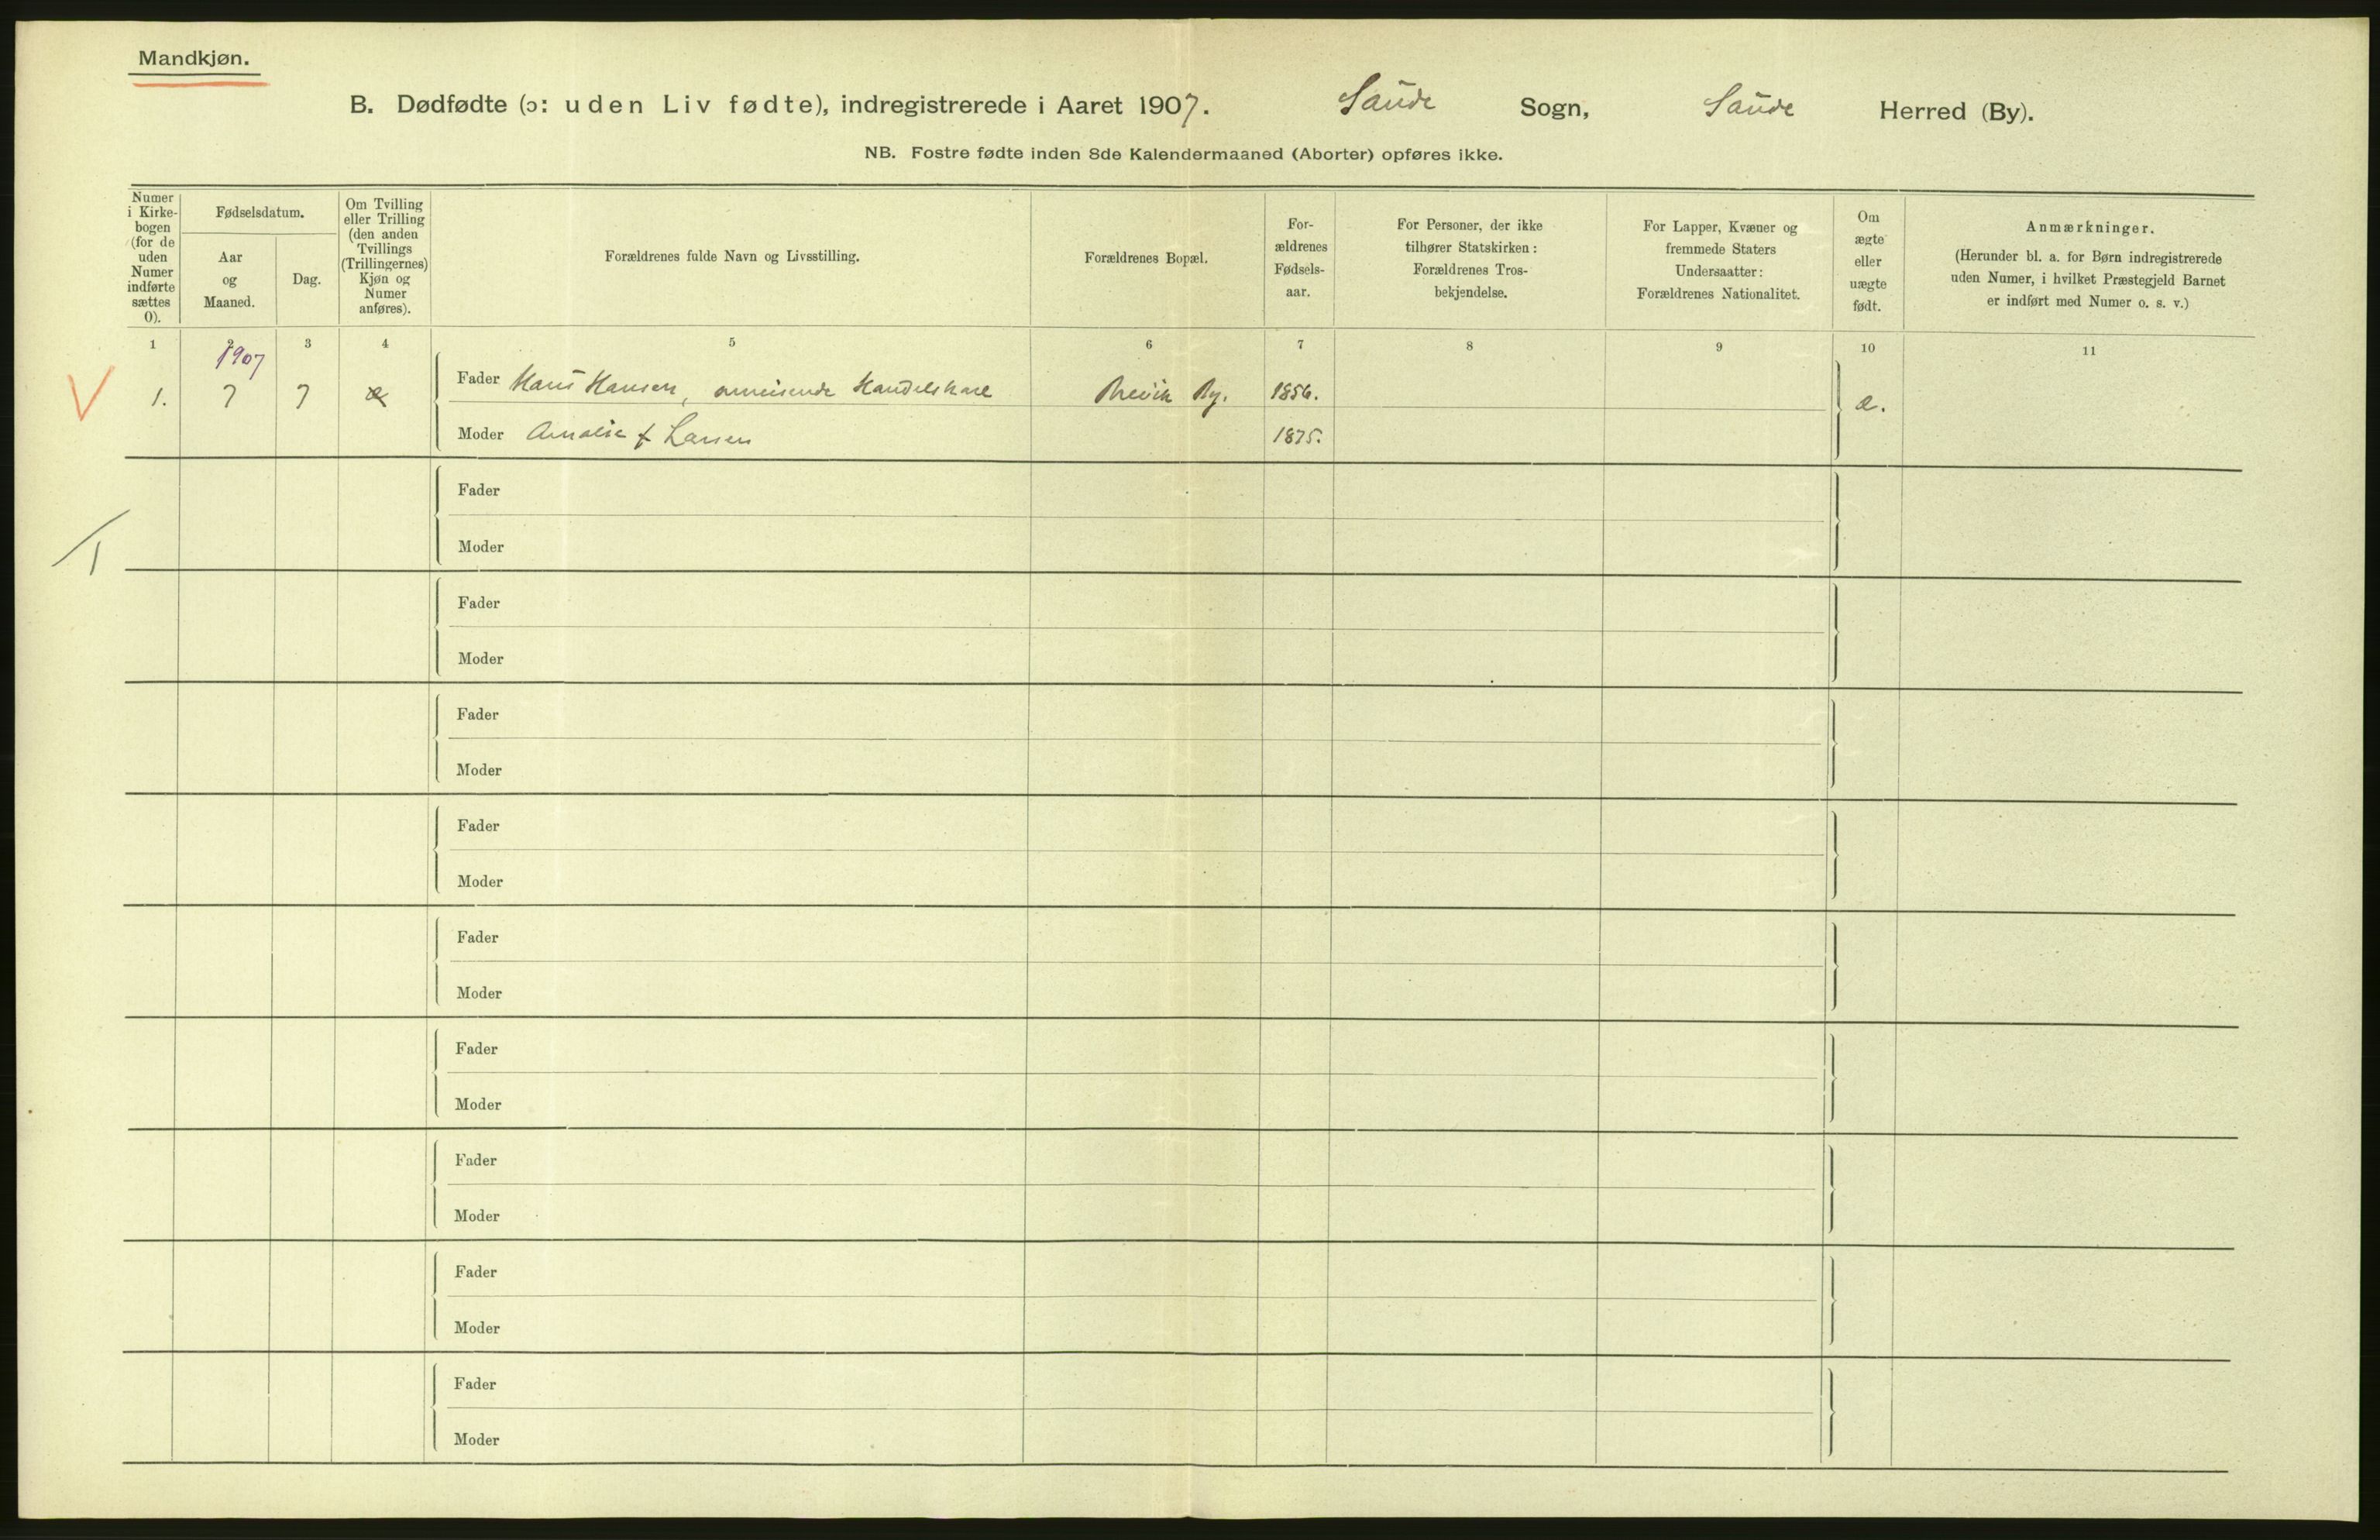 Mandkjøn.
B. Dødfødte (ɔ: uden Liv fødte), indregistrerede i Aaret 1907. Saude Sogn, Saude Herred (By).
NB. Fostre fødte inden 8de Kalendermaaned (Aborter) opføres ikke.
Numer
i Kirke-
bogen
(for de
uden
Numer
indførte
sættes
0).
Fødselsdatum.
Aar
og
Maaned.
Dag.
Om Tvilling
eller Trilling
(den anden
Tvillings
(Trillingernes)
Kjøn og
Numer
anføres).
Forældrenes fulde Navn og Livsstilling.
Forældrenes Bopæl.
For-
ældrenes
Fødsels-
aar.
For Personer, der ikke
tilhører Statskirken:
Forældrenes Tros-
bekjendelse.
For Lapper, Kvæner og
fremmede Staters
Undersaatter:
Forældrenes Nationalitet.
Om
ægte
eller
uægte
født.
Anmærkninger.
(Herunder bl. a. for Børn indregistrerede
uden Numer, i hvilket Præstegjeld Barnet
er indført med Numer o. s. v.)
1 2 3 4 5 6 7 8 9 10 11
1907
V 1. 7 7 Fader Hans Hansen, omreisende Handelskarl Brevik By. 1856. æ.
Moder Amalie f Larsen 1875.
Fader
Moder
1
Fader
Moder
Fader
Moder
Fader
Moder
Fader
Moder
Fader
Moder
Fader
Moder
Fader
Moder
Fader
Moder